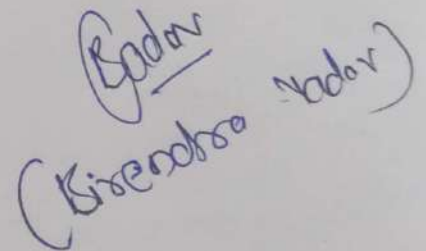 Badav
(Birendra Yadav)